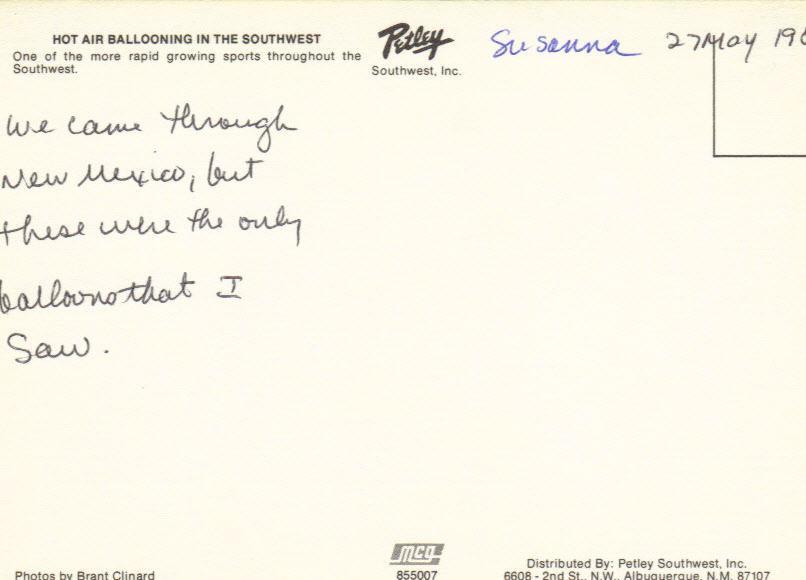 HOT AIR BALLOONING IN THE SOUTHWEST
One of the more rapid growing sports throughout the
Southwest.
Petley
Southwest, Inc.
Susanna
27 May 19
We came through
New Mexico, but
these were the only
balloons that I
Saw.
Photos by Brant Clinard
mcg
855007
Distributed By: Petley Southwest, Inc.
6608 - 2nd St., N.W., Albuquerque, N.M. 87107